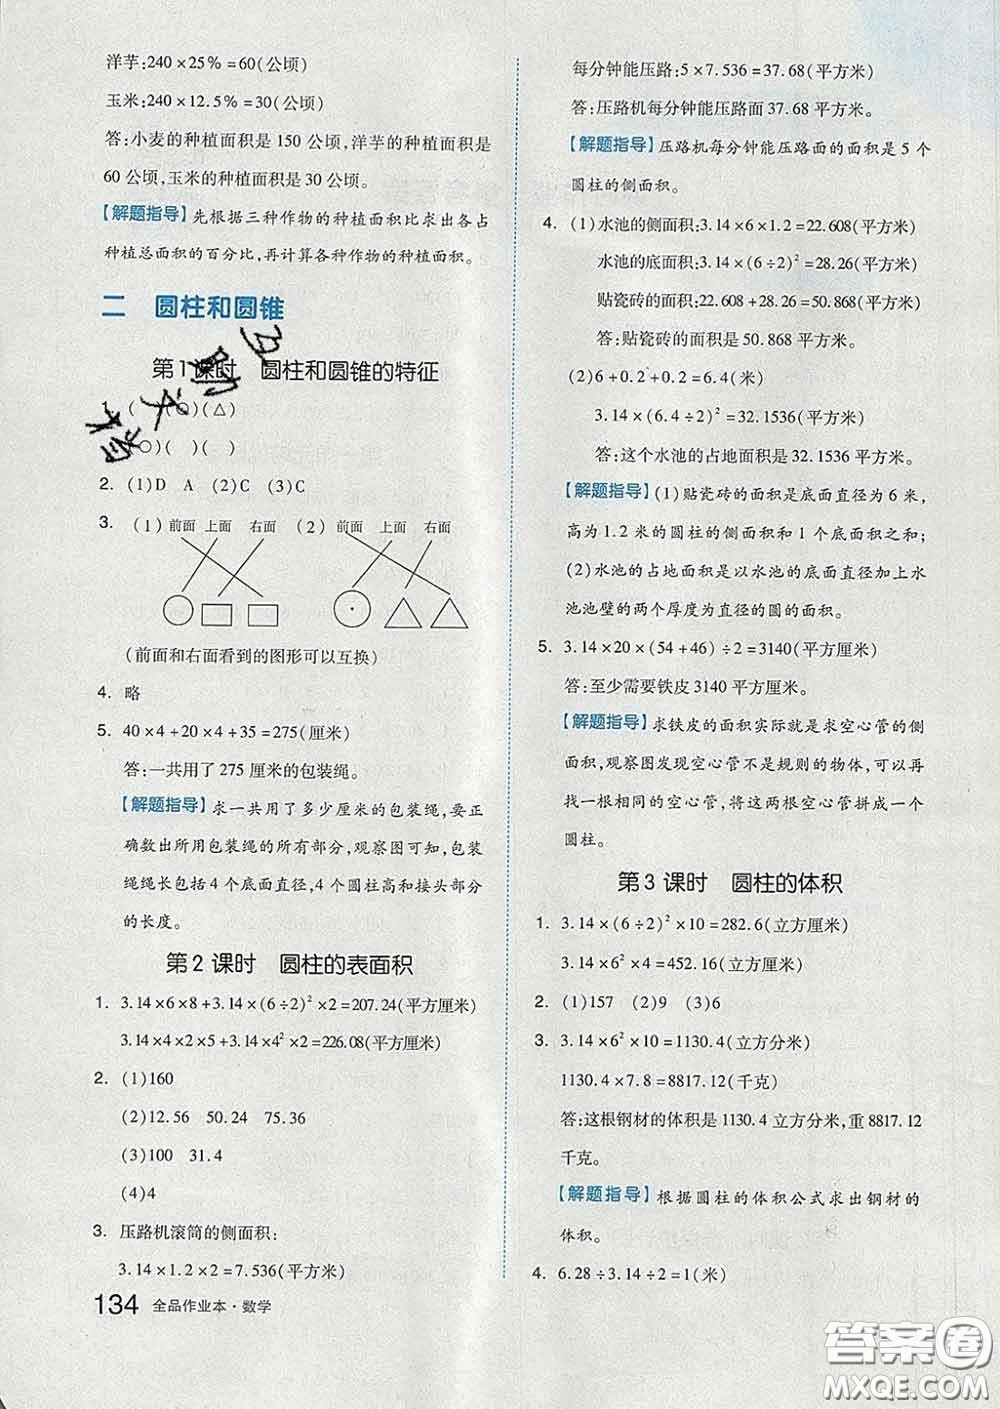 洋芋:240×25%=60(公顷)
玉米:240×12.5%=30(公顷)
答:小麦的种植面积是 150 公顷,洋芋的种植面积是
60 公顷,玉米的种植面积是 30 公顷。
【解题指导】先根据三种作物的种植面积比求出各占
种植总面积的百分比,再计算各种作物的种植面积。
二 圆柱和圆锥
第 1 课时 圆柱和圆锥的特征
( )(○)(△)
(○)( )( )
2. (1)D A (2)C (3)C
3. (1) 前面 上面 右面 (2) 前面 上面 右面
(前面和右面看到的图形可以互换)
4. 略
5. 40×4+20×4+35=275(厘米)
答:一共用了 275 厘米的包装绳。
【解题指导】求一共用了多少厘米的包装绳,要正
确数出所用包装绳的所有部分,观察图可知,包装
绳绳长包括 4 个底面直径,4 个圆柱高和接头部分
的长度。
第 2 课时 圆柱的表面积
1. 3.14×6×8+3.14×(6÷2)²×2=207.24(平方厘米)
3.14×4×2×5+3.14×4²×2=226.08(平方厘米)
2. (1)160
(2)12.56 50.24 75.36
(3)100 31.4
(4)4
3. 压路机滚筒的侧面积:
3.14×1.2×2=7.536(平方米)
134 全品作业本·数学
每分钟能压路:5×7.536=37.68(平方米)
答:压路机每分钟能压路面 37.68 平方米。
【解题指导】压路机每分钟能压路面的面积是 5 个
圆柱的侧面积。
4. (1)水池的侧面积:3.14×6×1.2=22.608(平方米)
水池的底面积:3.14×(6÷2)²=28.26(平方米)
贴瓷砖的面积:22.608+28.26=50.868(平方米)
答:贴瓷砖的面积是 50.868 平方米。
(2)6+0.2+0.2=6.4(米)
3.14×(6.4÷2)²=32.1536(平方米)
答:这个水池的占地面积是 32.1536 平方米。
【解题指导】(1)贴瓷砖的面积是底面直径为 6 米,
高为 1.2 米的圆柱的侧面积和 1 个底面积之和;
(2)水池的占地面积是以水池的底面直径加上水
池池壁的两个厚度为直径的圆的面积。
5. 3.14×20×(54+46)÷2=3140(平方厘米)
答:至少需要铁皮 3140 平方厘米。
【解题指导】求铁皮的面积实际就是求空心管的侧
面积,观察图发现空心管不是规则的物体,可以再
找一根相同的空心管,将这两根空心管拼成一个
圆柱。
第 3 课时 圆柱的体积
1. 3.14×(6÷2)²×10=282.6(立方厘米)
3.14×6²×4=452.16(立方厘米)
2. (1)157 (2)9 (3)6
3. 3.14×6²×10=1130.4(立方分米)
1130.4×7.8=8817.12(千克)
答:这根钢材的体积是 1130.4 立方分米,重 8817.12
千克。
【解题指导】根据圆柱的体积公式求出钢材的
体积。
4. 6.28÷3.14÷2=1(米)
答案圈
MXQE.COM